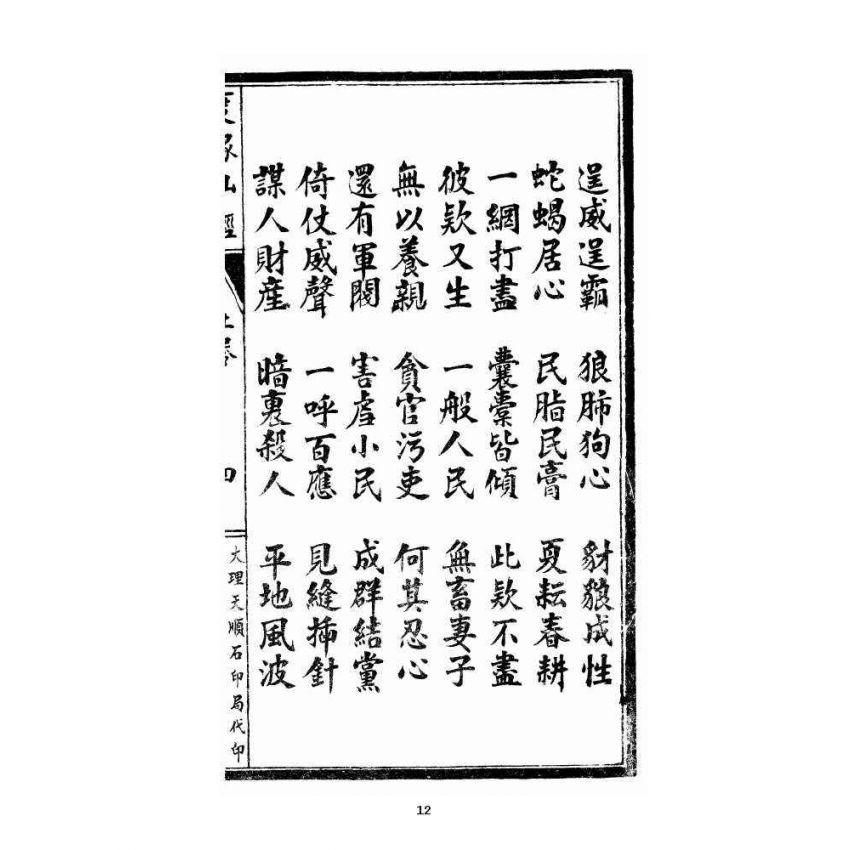 逞威逞霸 狼肺狗心 豺狼成性
蛇蝎居心 民脂民膏 夏耘春耕
一網打盡 囊橐皆傾 此欵不盡
彼欵又生 一般人民 無畜妻子
無以養親 貪官污吏 何其忍心
還有軍閥 害虐小民 成群結黨
倚仗威聲 一呼百應 見縫揷針
謀人財産 暗裏殺人 平地風波
四
大理天順石印局代印
12